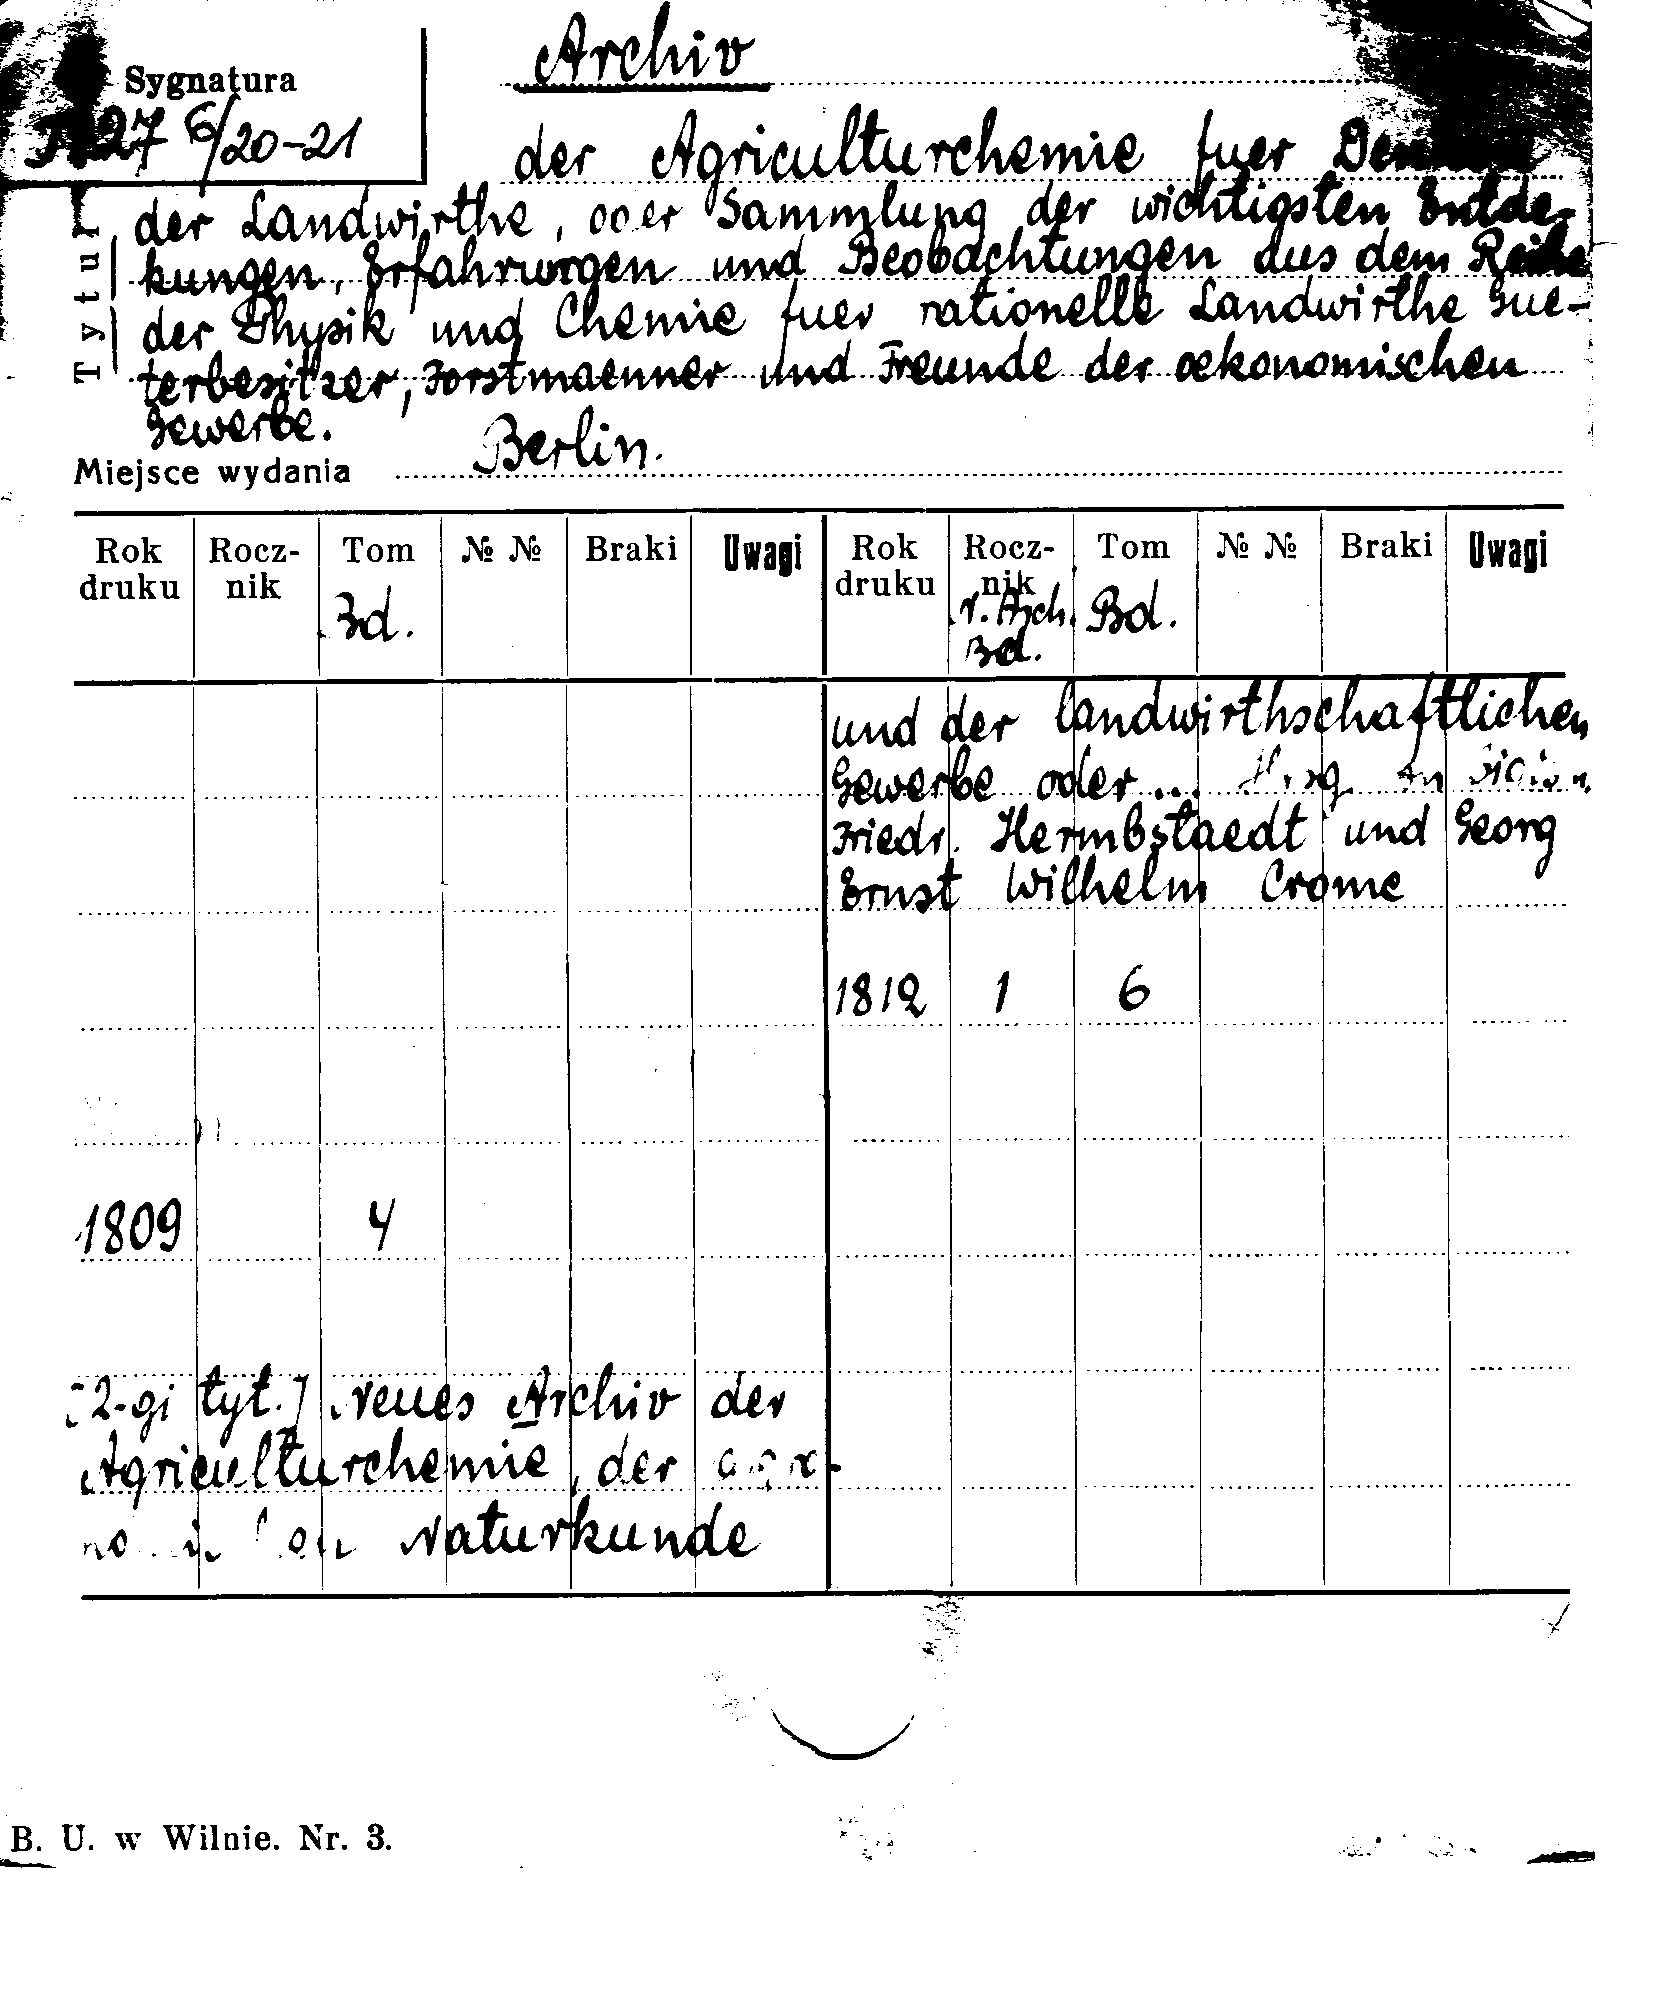 Archiv
Sygnatura
27 6/20-21
der Agriculturchemie fuer
Tytuł
der Landwirthe, oder Sammlung der wichtigsten Entde-
kungen, Erfahrungen und Beobachtungen aus dem Reihe
der Physik und Chemie fuer rationelle Landwirthe Gue-
terbesitzer, Forstmaenner und Freunde der oekonomischen
Gewerbe.
Berlin.
Miejsce wydania
Rok druku Rocz-nik Tom № № Braki Uwagi Rok druku Rocz-nik Tom № № Braki Uwagi
Bd. v. Arch. Bd. Bd.
und der landwirthschaftlichen
Gewerbe oder...
Friedr. Hermbstaedt und Georg
Ernst Wilhelm Crome
1812 1 6
1809 4
[2-gi tyt.] Neues Archiv der
Agriculturchemie, der
Naturkunde
B. U. w Wilnie. Nr. 3.